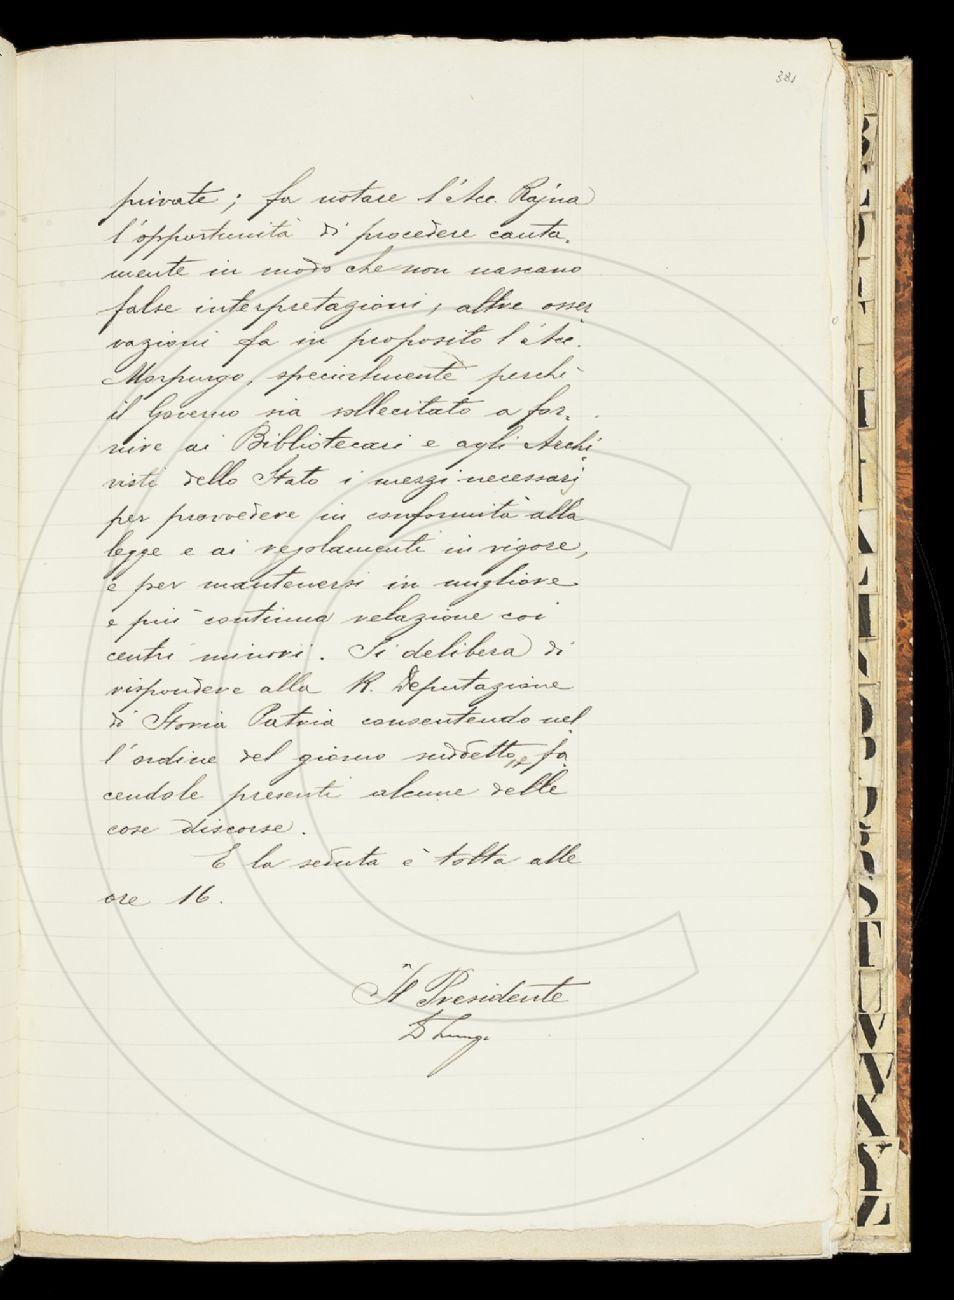 381
private; fa notare l'Acc. Rajna
l'opportunità di procedere cauta-
mente in modo che non nascano
false interpretazioni; altre osser
vazioni fa in proposito l'Acc.
Morpurgo, specialmente perchè
il Governo sia sollecitato a for-
nire ai Bibliotecari e agli Archi-
visti dello Stato i mezzi necessarj
per provvedere in conformità alla
legge e ai regolamenti in vigore,
e per mantenersi in migliore
e più continua relazione coi
centri minori. Si delibera di
rispondere alla R. Deputazione
di Storia Patria consentendo nel
l'ordine del giorno suddetto, e fa-
cendole presenti alcune delle
cose discorse.
E la seduta è tolta alle
ore 16.
Il Presidente